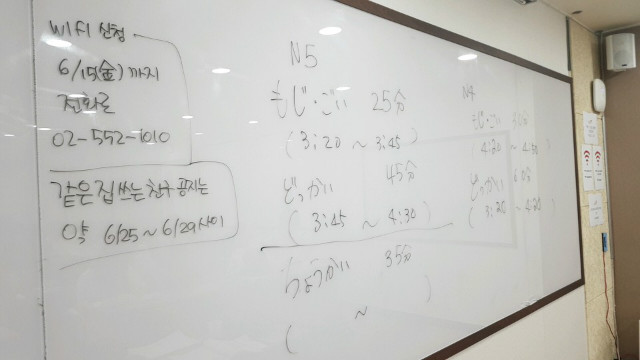 WIFI 신청
6/15(金) 까지
전화로
02-552-1010
같은 집 쓰는 친구 공지는
약 6/25 ~ 6/29 사이
N5
もじ・ごい 25分
(3:20 ~ 3:45)
どっかい 45分
(3:45 ~ 4:30)
ちょうかい 35分
( ~ )
N4
もじ・ごい
どっかい
(3:20 ~ 4:20)